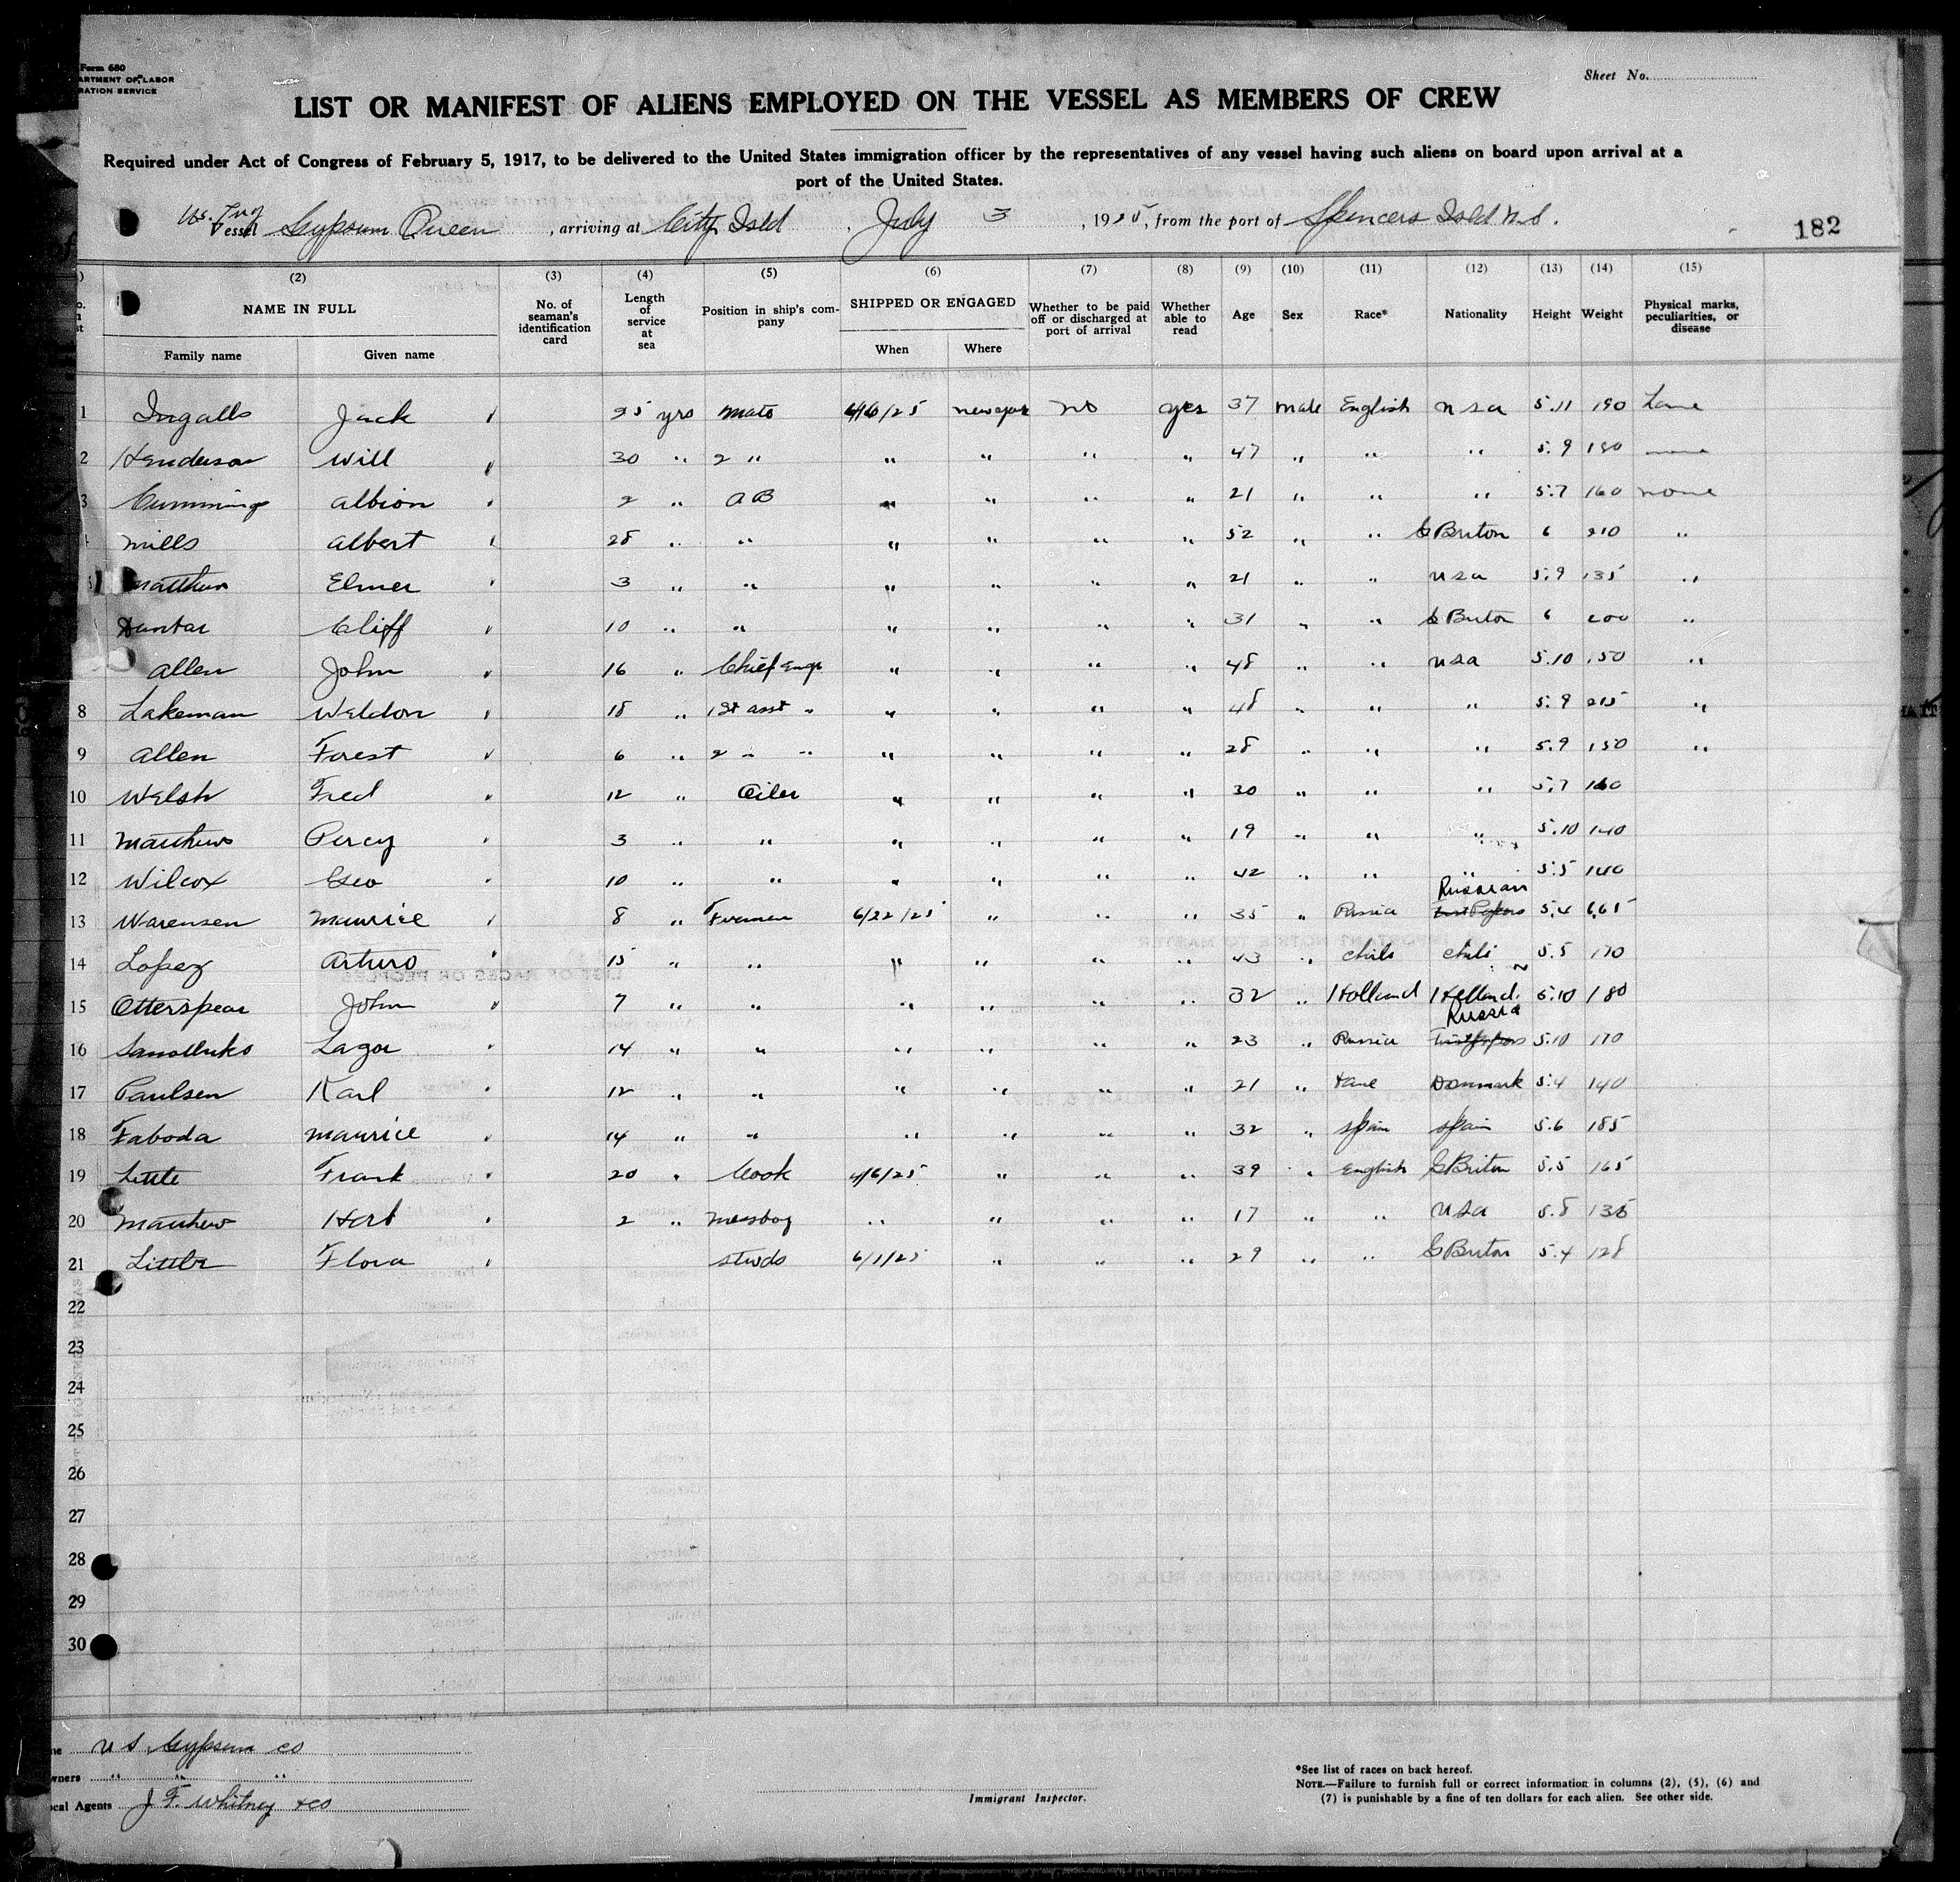 Form 680
ARTMENT OF LABOR
RATION SERVICE
Sheet No.
LIST OR MANIFEST OF ALIENS EMPLOYED ON THE VESSEL AS MEMBERS OF CREW
Required under Act of Congress of February 5, 1917, to be delivered to the United States immigration officer by the representatives of any vessel having such aliens on board upon arrival at a
port of the United States.
Us. Tug
Vessel Gypsum Queen, arriving at City Isld, July 3, 1925, from the port of Spencers Isld N.S.
182
(2) (3) (4) (5) (6) (7) (8) (9) (10) (11) (12) (13) (14) (15)
NAME IN FULL No. of seaman's identification card Length of service at sea Position in ship's company SHIPPED OR ENGAGED Whether to be paid off or discharged at port of arrival Whether able to read Age Sex Race* Nationality Height Weight Physical marks, peculiarities, or disease
Family name Given name When Where
1 Ingalls Jack 25 yrs mate 4/6/25 newyork no yes 37 male English usa 5.11 190
2 Henderson Will 30 " 2 " " " " " 47 " " " 5.9 180 none
3 Cummings Albion 2 " AB " " " " 21 " " " 5.7 160 none
Mills Albert 28 " " " " " " 52 " " G Briton 6 210 "
Matthews Elmer 3 " " " " " " 21 " " usa 5.9 135 "
Dunbar Cliff 10 " " " " " " 31 " " G Briton 6 200 "
Allen John 16 " Chief Engr " " " " 48 " " usa 5.10 150 "
8 Lakeman Weldon 18 " 1st asst " " " " " 48 " " " 5.9 215 "
9 Allen Forest 6 " 2 " " " " " " 28 " " " 5.9 150 "
10 Welsh Fred 12 " Oiler " " " " 30 " " " 5.7 160
11 Matthews Percy 3 " " " " " " 19 " " " 5.10 140
12 Wilcox Geo 10 " " " " " " 42 " " " 5.5 140
Russian
13 Warensen Maurice 8 " Firemen 6/22/25 " " " 35 " Russia First Papers 5.4 165
14 Lopez Arturo 15 " " " " " " 43 " Chile Chile 5.5 170
15 Otterspear John 7 " " " " " " 32 " Holland Holland 5.10 180
Russia
16 Lazar 14 " " " " " " 23 " Russia First papers 5.10 170
17 Paulsen Karl 12 " " " " " " 21 " Dane Denmark 5.4 140
18 Taboda Maurice 14 " " " " " " 32 " Spain Spain 5.6 185
19 Little Frank 20 " Cook 4/6/25 " " " 39 " English G Briton 5.5 165
20 Matthew Herb 2 " Messboy " " " " 17 " " usa 5.8 135
21 Little Flora stwds 6/1/25 " " " 29 " " G Briton 5.4 128
22
23
24
25
26
27
28
29
30
U S Gypsum Co
wners " " "
ocal Agents J. F. Whitney & Co
Immigrant Inspector.
*See list of races on back hereof.
NOTE.—Failure to furnish full or correct information in columns (2), (5), (6) and
(7) is punishable by a fine of ten dollars for each alien. See other side.